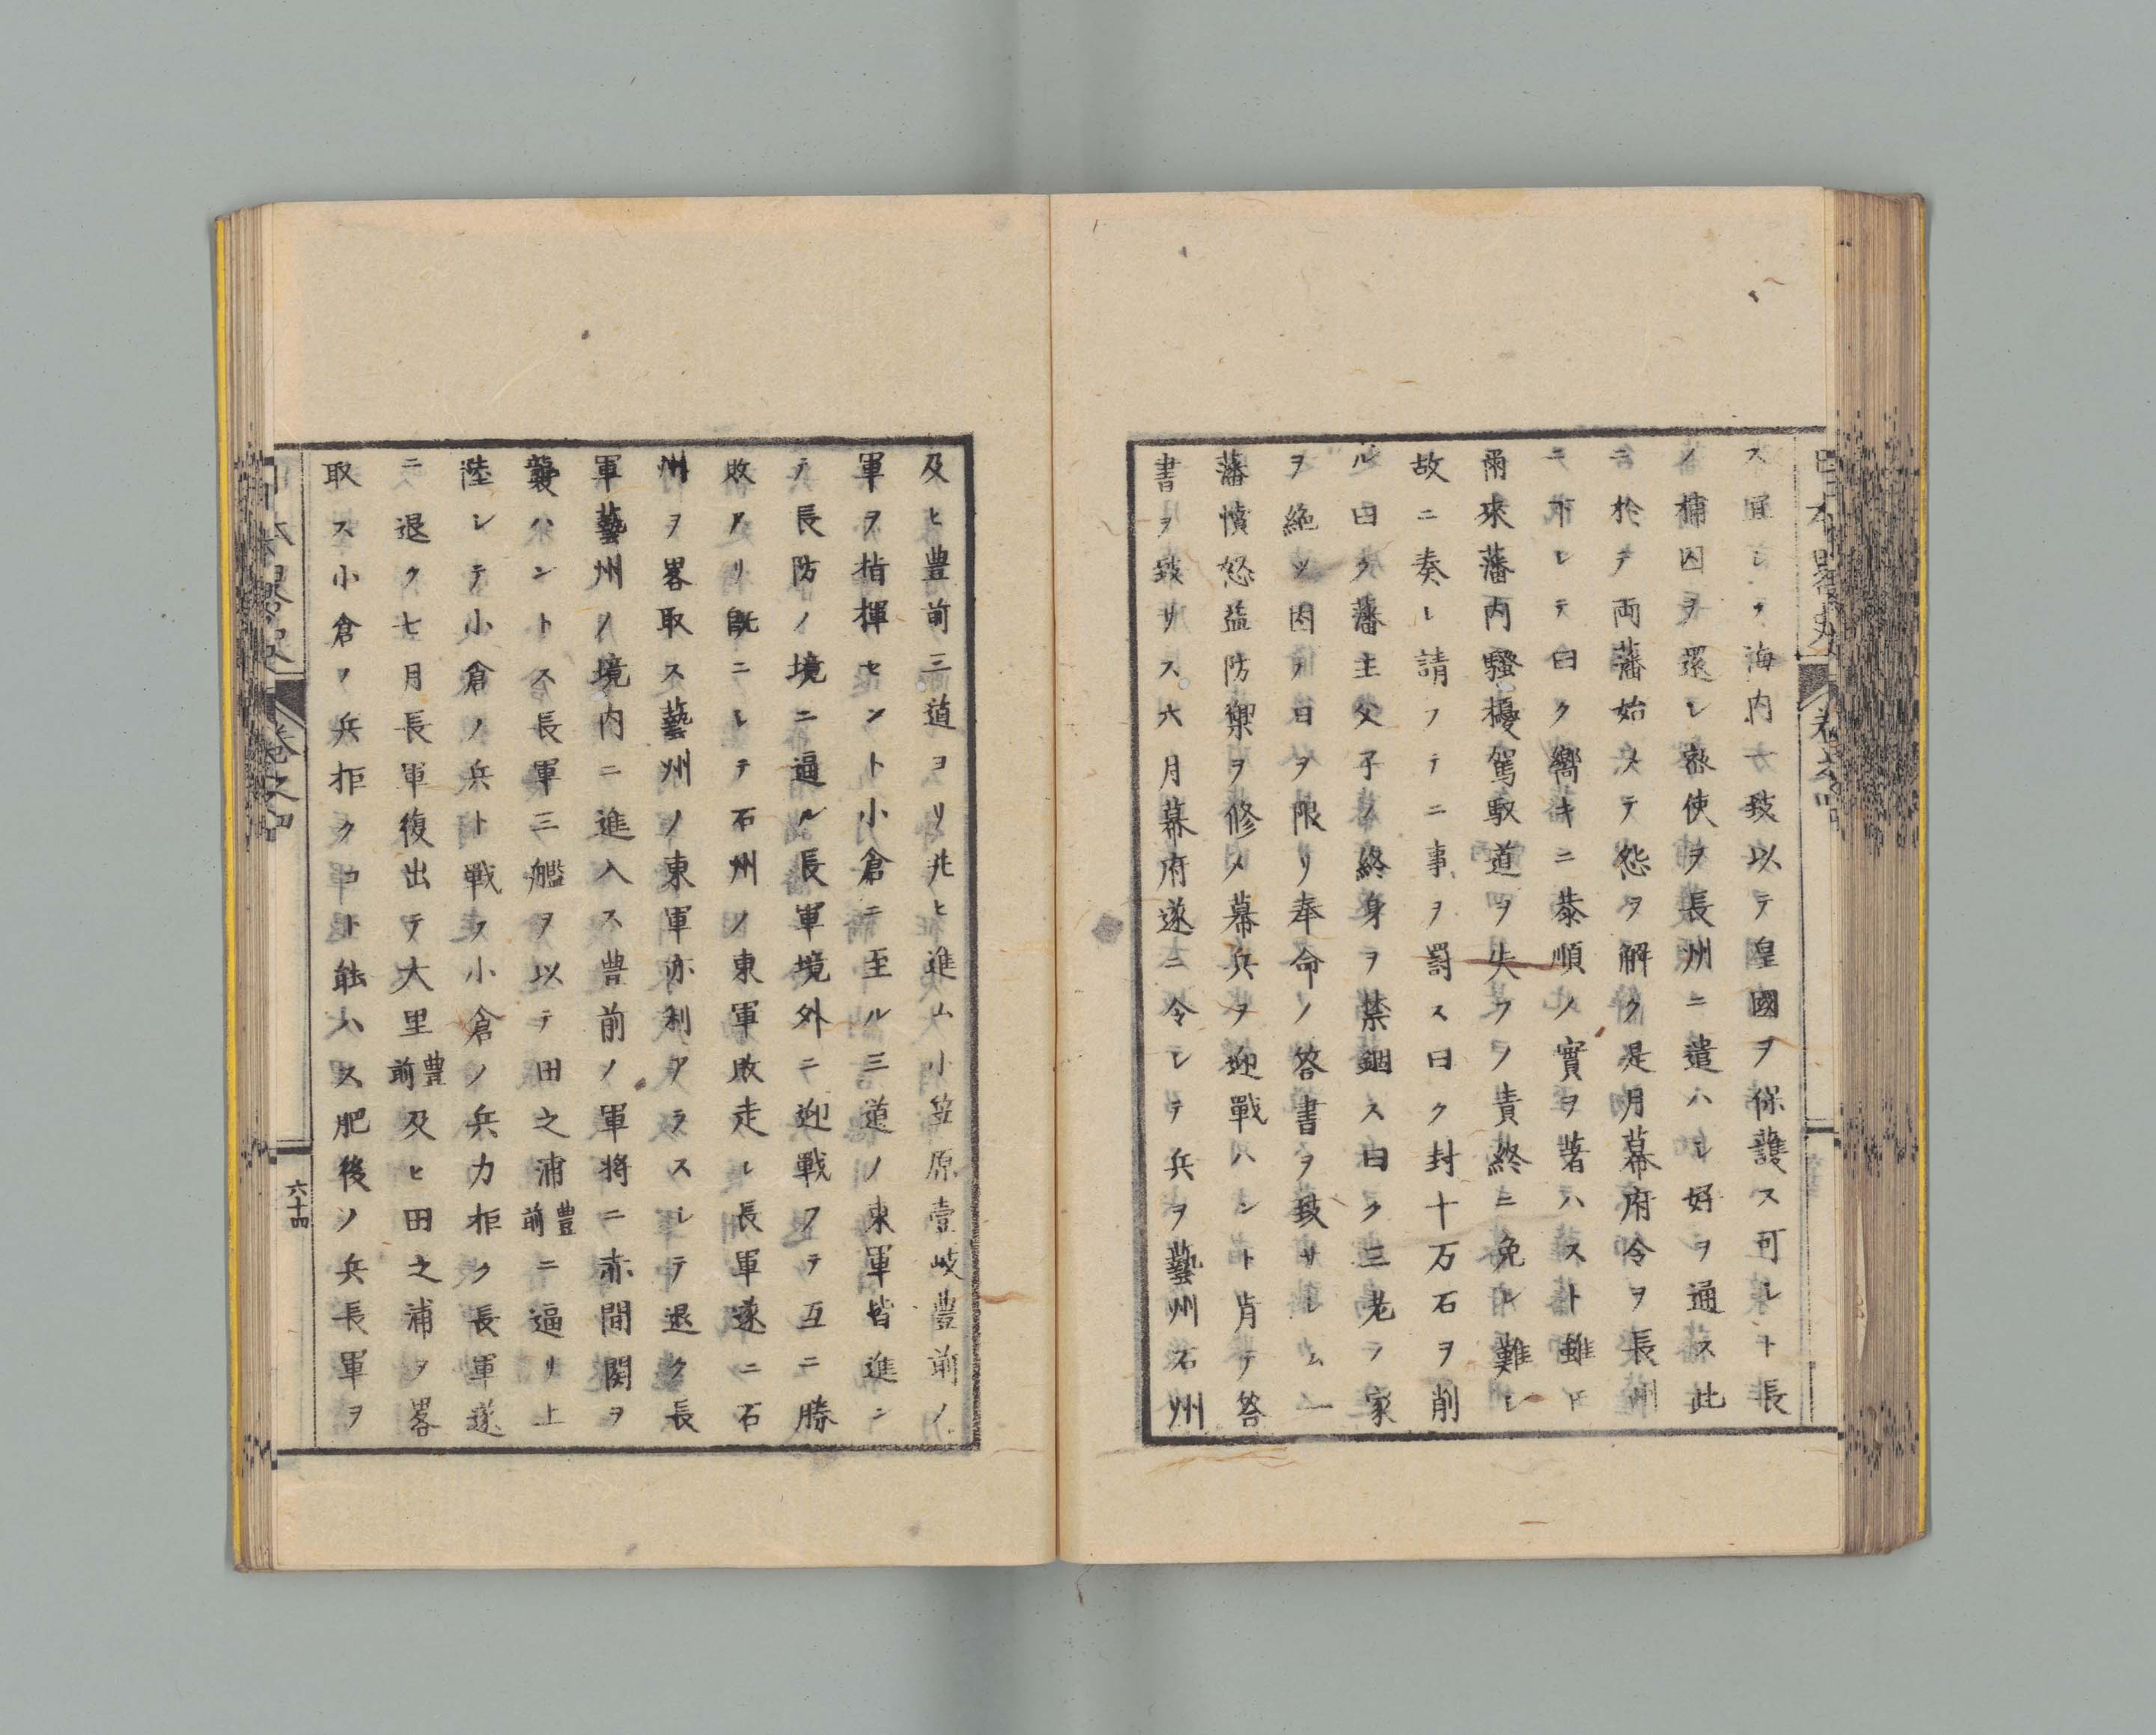 ス宜シク海内一致以テ皇國ヲ保護ス可シト長
ノ捕囚ヲ還シ敵使ヲ長州ニ遣ハシ好ヲ通ス此
ニ於テ両藩始メテ怨ヲ解ク是月幕府令ヲ長州
ニ下シテ曰ク嚮キニ恭順ノ實ヲ著ハスト雖ㇳ
爾来藩内騒擾駕馭道ヲ失フノ責終ニ免レ難シ
故ニ奏シ請フテ二事ヲ罰ス曰ク封十万石ヲ削
ル曰ク藩主父子ノ終身ヲ禁錮ス曰ク三老ラ家
ヲ絶ツ因テ日ヲ限リ奉命ノ答書ヲ致サシム一
藩憤怒益防禦ヲ修メ幕兵ヲ迎戰ハント肯テ答
書ヲ致サス六月幕府遂ニ令シテ兵ヲ藝州石州
及ヒ豊前三道ヨリ並ヒ進ム小笠原壹岐豊前ノ
軍ヲ指揮セント小倉ニ至ル三道ノ東軍皆進ン
テ長防ノ境ニ逼ル長軍境外ニ迎戰フテ互ニ勝
敗アリ既ニシテ石州ノ東軍敗走シ長軍遂ニ石
州ヲ畧取ス藝州ノ東軍亦利アラスシテ退ク長
軍藝州ノ境内ニ進入ス豊前ノ軍将ニ赤間関ヲ
襲ハントス長軍三艦ヲ以テ田之浦豊前ニ逼リ上
陸シテ小倉ノ兵ト戰フ小倉ノ兵力拒ク長軍遂
ニ退ク七月長軍復出テ大里豊前及ヒ田之浦ヲ畧
取ス小倉ノ兵拒クコト能ハス肥後ノ兵長軍ヲ
日本畧史
卷之四
六十四